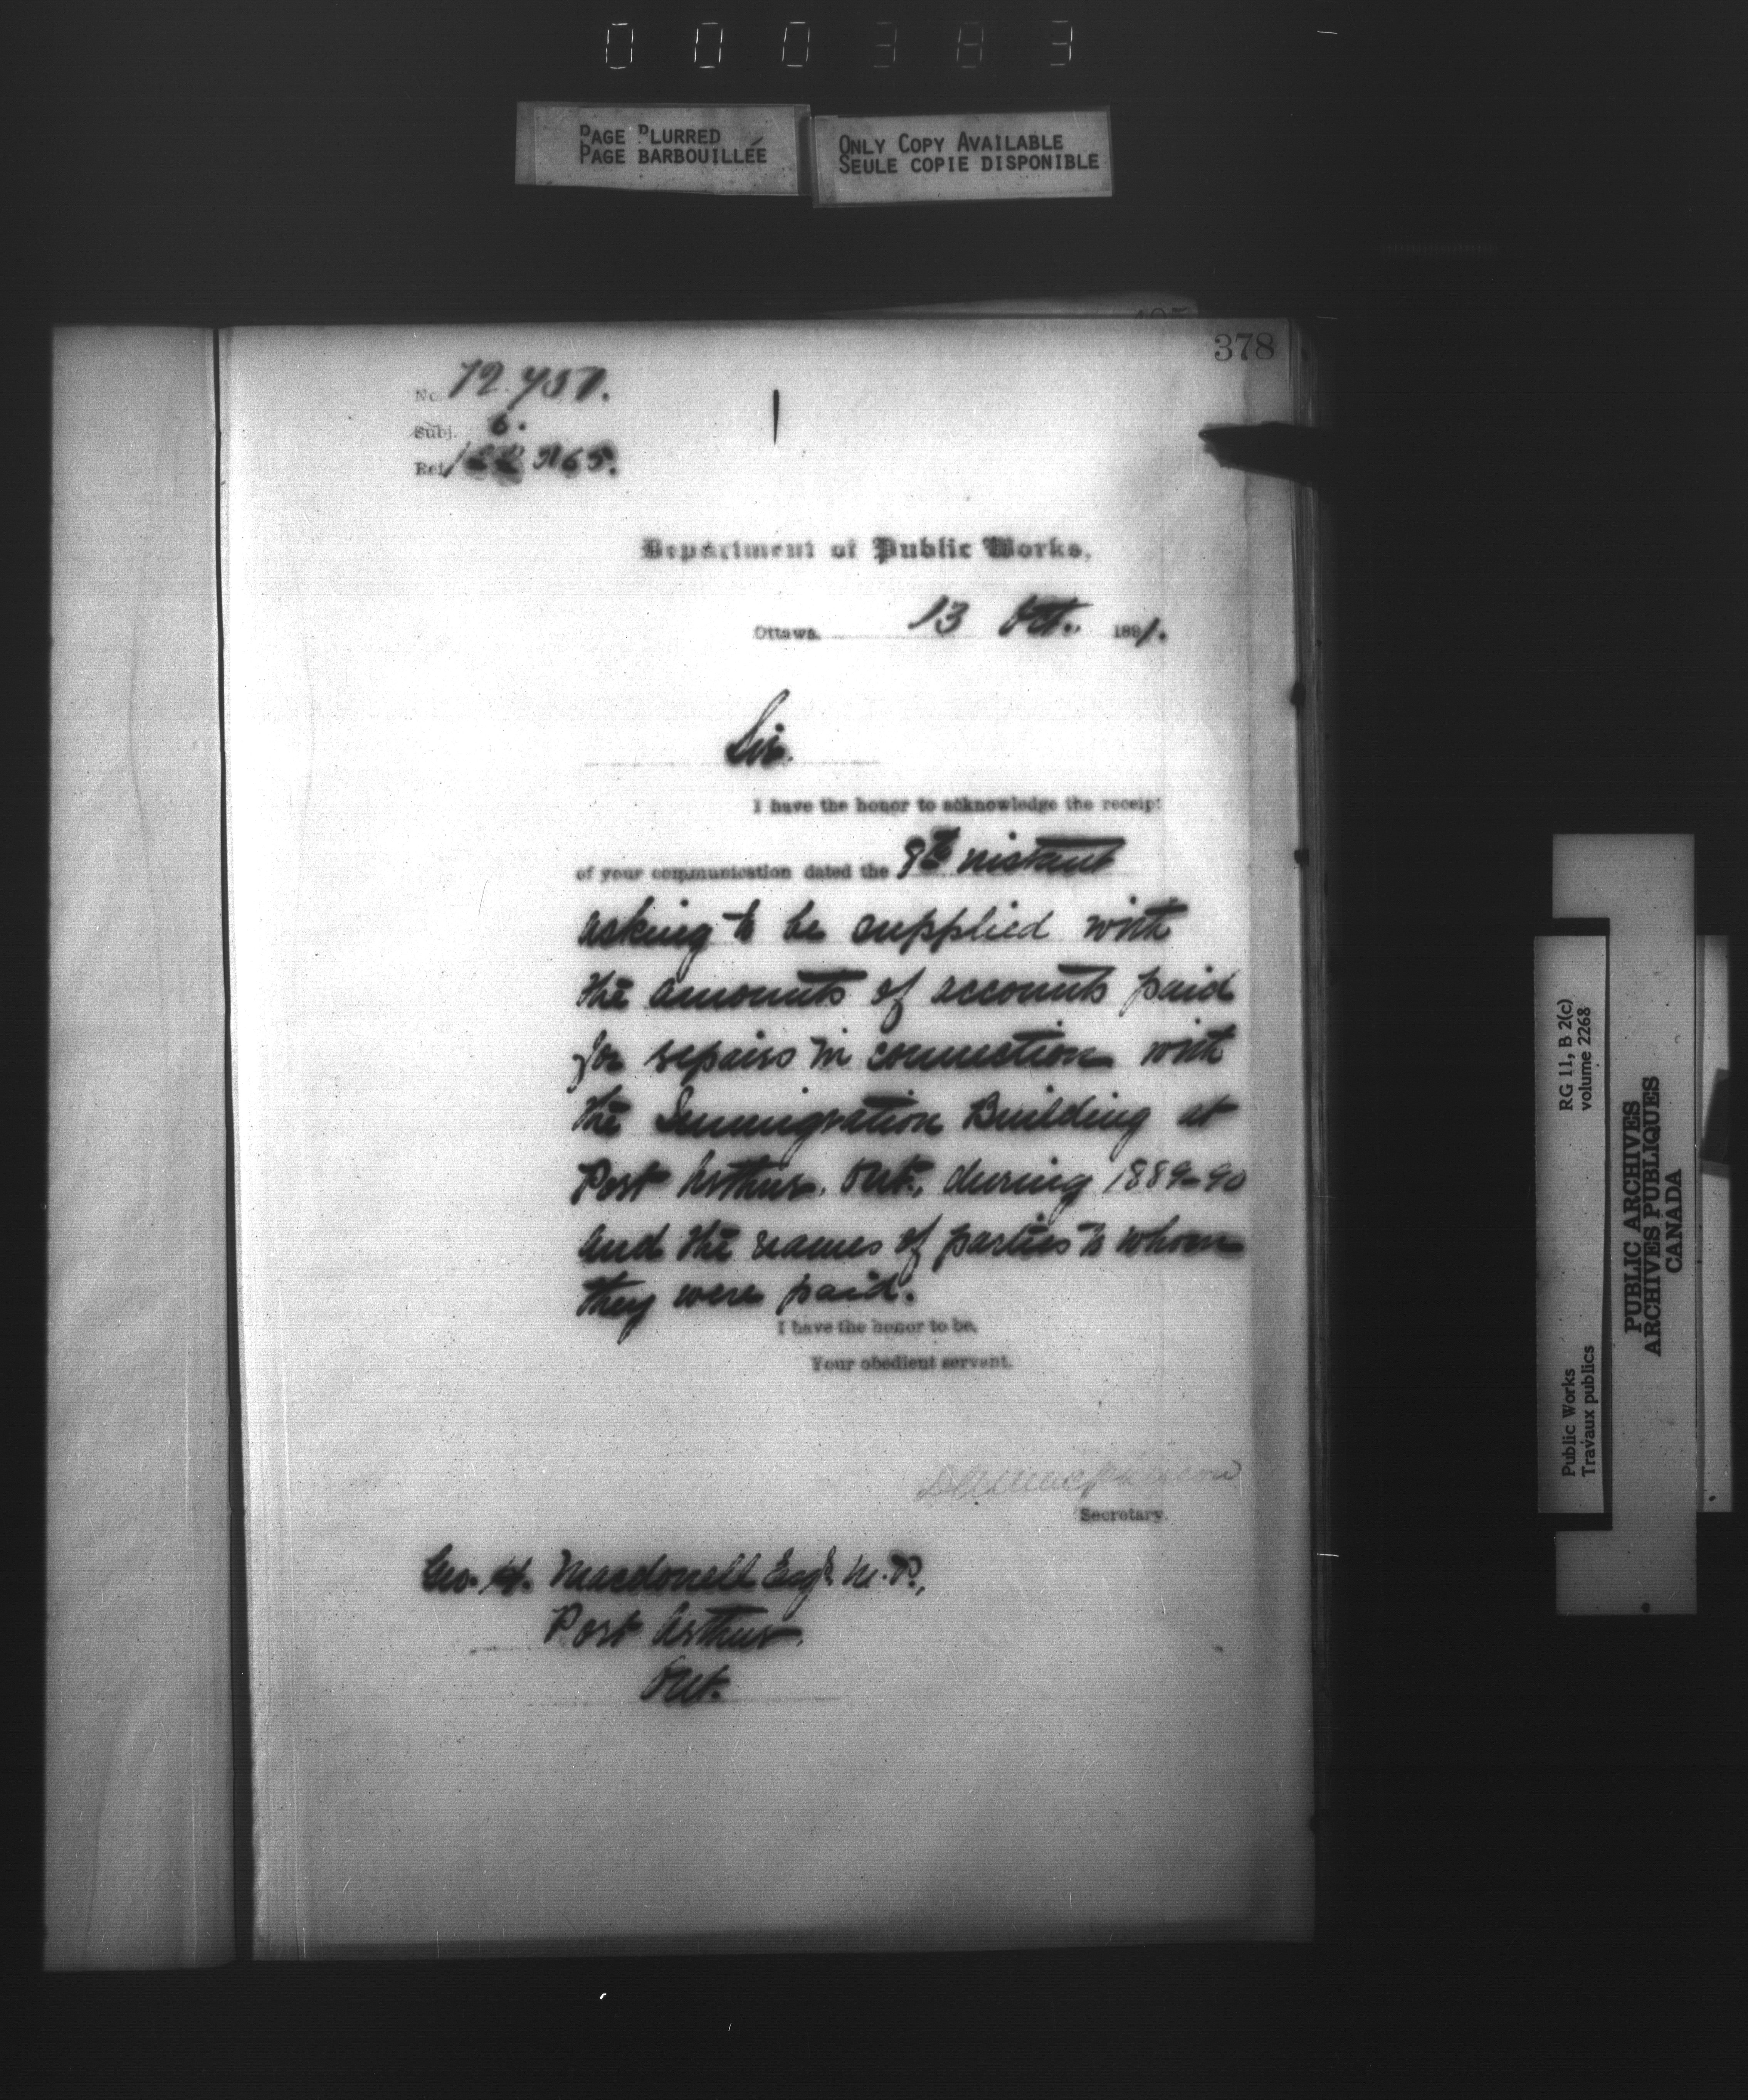 000383
PAGE BLURRED
PAGE BARBOUILLÉE
ONLY COPY AVAILABLE
SEULE COPIE DISPONIBLE
378
No. 12.757.
Subj. 6.
Ref.
Department of Public Works,
Ottawa. 13 Oct. 1891.
Sir.
I have the honor to acknowledge the receipt
of your communication dated the 9th instant
asking to be supplied with
the amounts of accounts paid
for repairs in connection with
the Immigration Building at
Port Arthur. Ont., during 1889-90
and the names of parties to whom
they were paid.
I have the honor to be,
Your obedient servant.
Secretary.
Geo. H. Macdonell Esqr. M.P.,
Port Arthur.
Ont.
RG 11, B 2(c)
volume 2268
Public Works
Travaux publics
PUBLIC ARCHIVES
ARCHIVES PUBLIQUES
CANADA